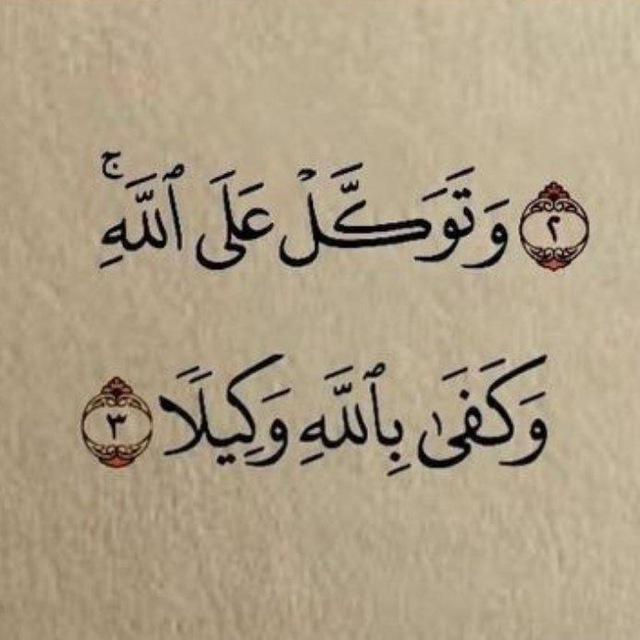 ٢ وَتَوَكَّلۡ عَلَى ٱللَّهِۚ
وَكَفَىٰ بِٱللَّهِ وَكِيلَا ٣